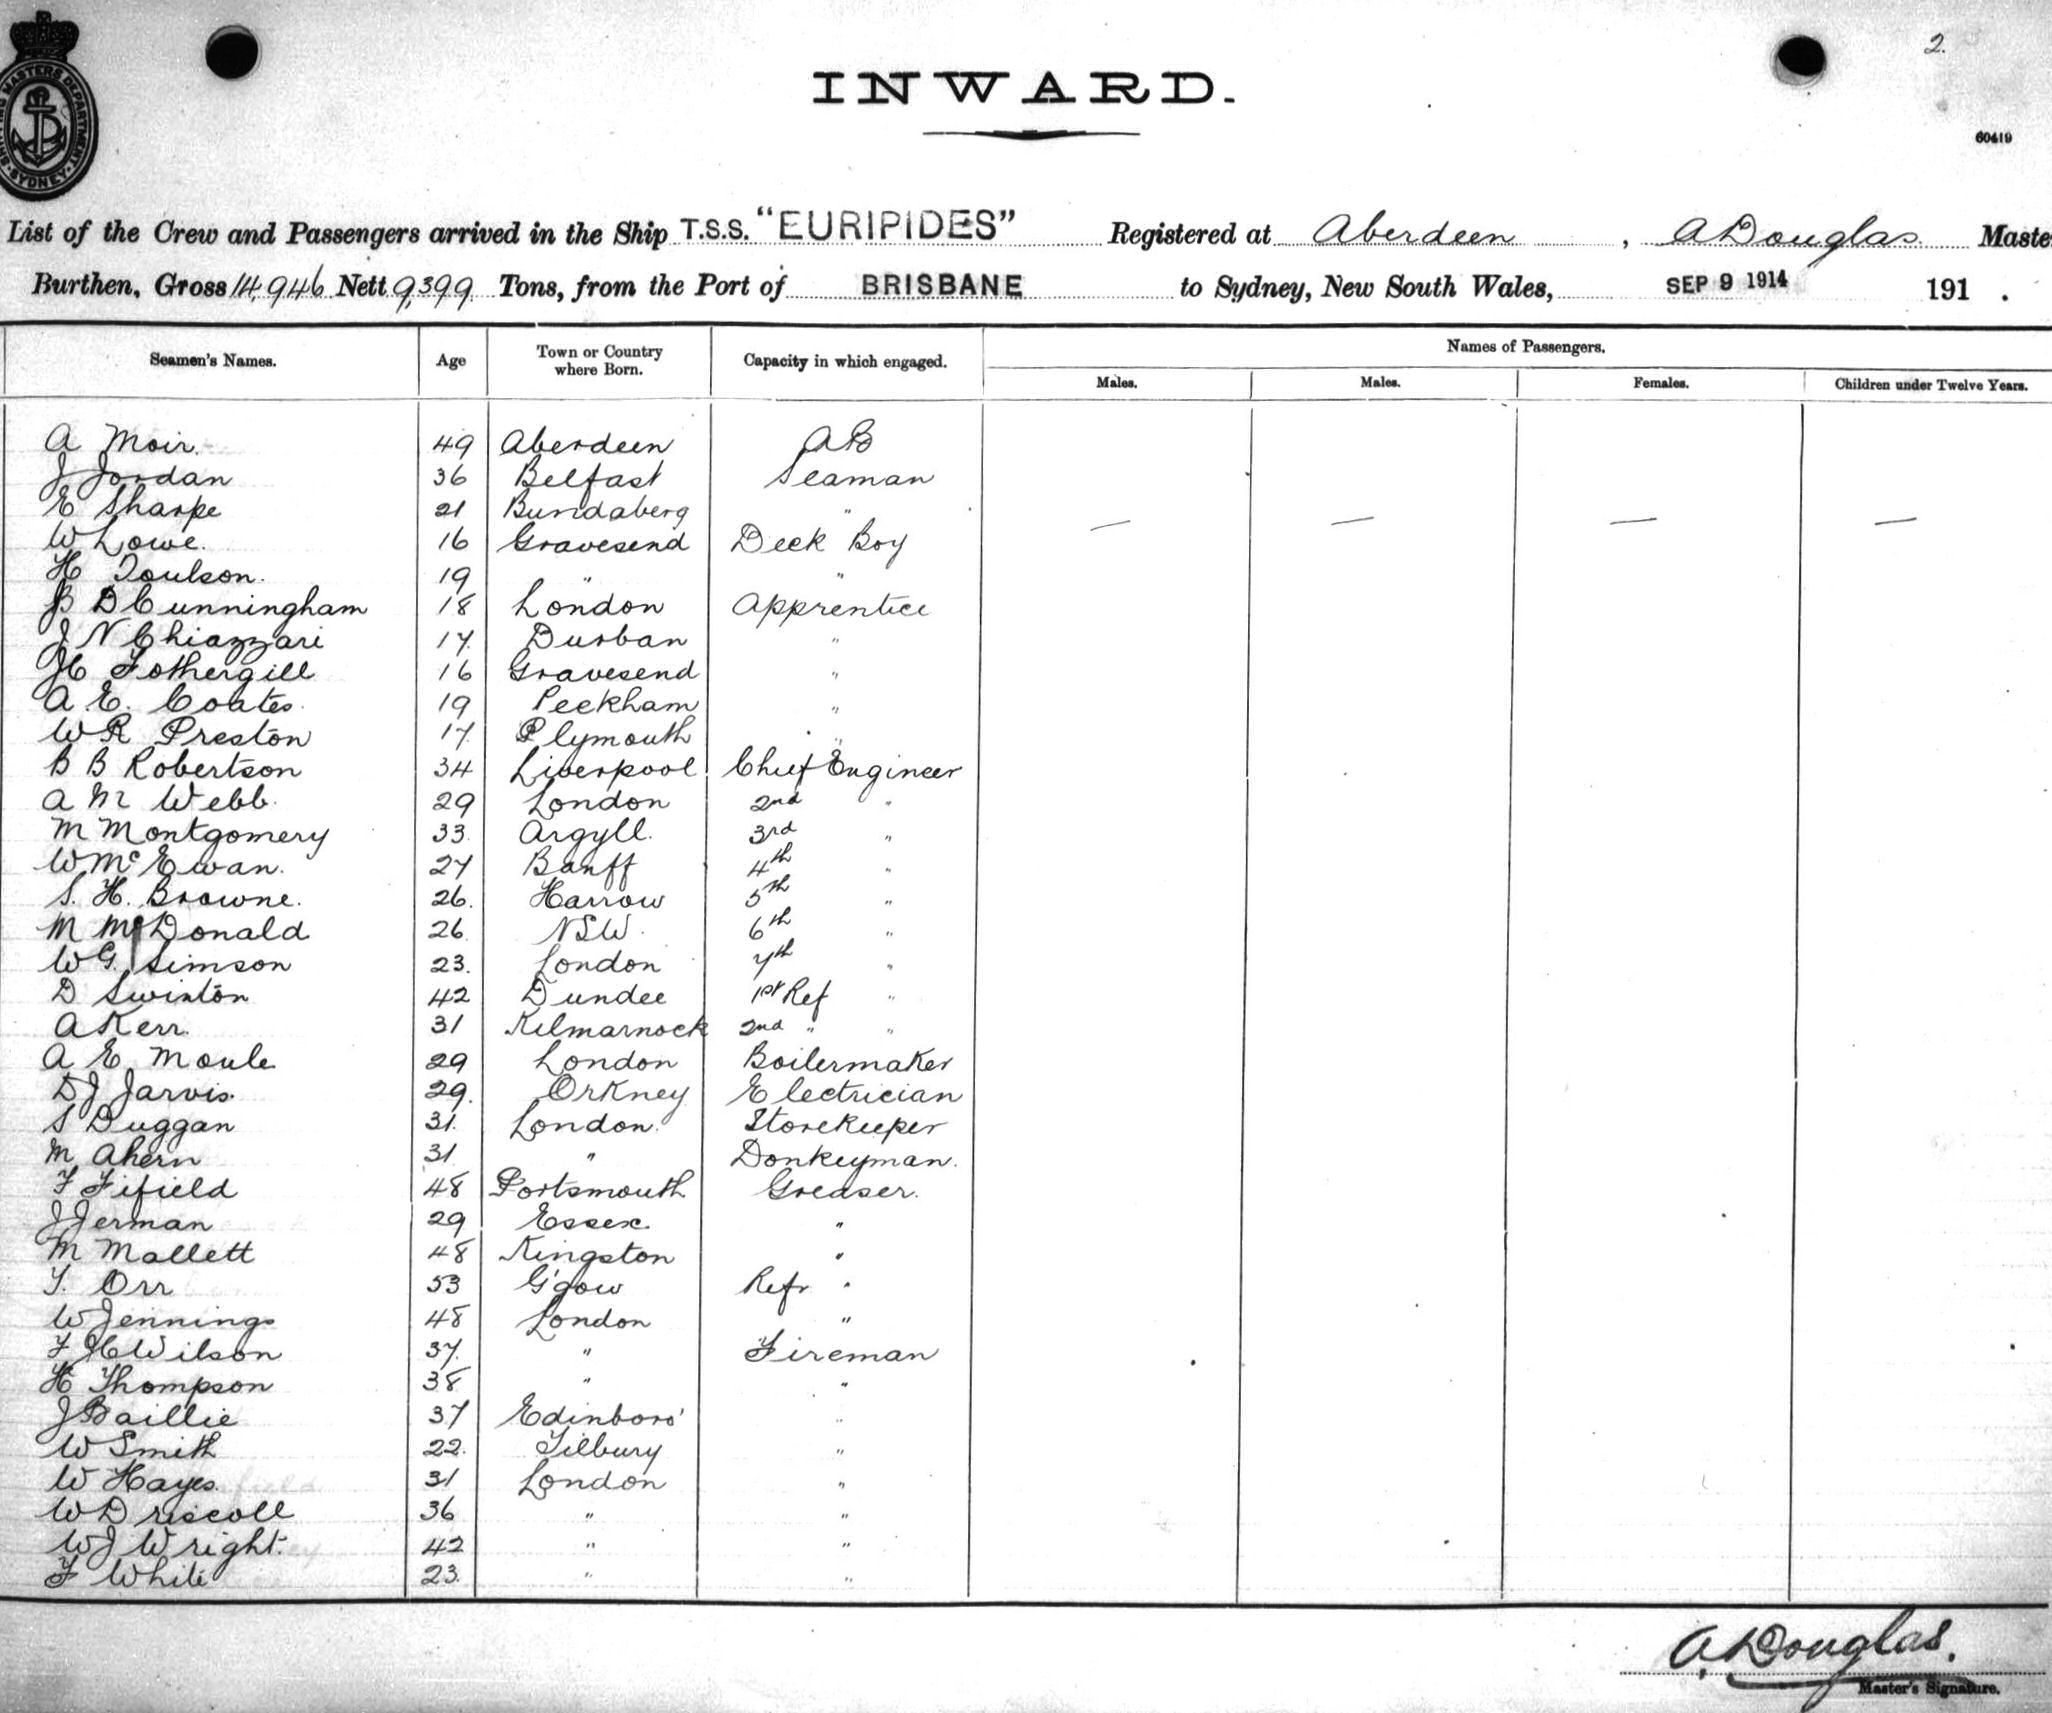 2.
INWARD.
60419
SHIPPING MASTERS DEPARTMENT SYDNEY
List of the Crew and Passengers arrived in the Ship T.S.S. "EURIPIDES" Registered at Aberdeen, A Douglas Master
Burthen, Gross 14,946 Nett 9,399 Tons, from the Port of BRISBANE to Sydney, New South Wales, SEP 9 1914 191 .
Seamen's Names. Age Town or Country where Born. Capacity in which engaged. Names of Passengers.
Males. Males. Females. Children under Twelve Years.
A Moir. 49 Aberdeen AB
J Jordan 36 Belfast Seaman
E Sharpe 21 Bundaberg "
W Lowe. 16 Gravesend Deck Boy
H Toulson. 19 " "
B D Cunningham 18 London Apprentice
J N Chiazzari 17. Durban "
H Fothergill 16 Gravesend "
A. E. Coates. 19 Peckham "
W R Preston 17. Plymouth "
B B Robertson 34 Liverpool Chief Engineer
A M Webb. 29 London 2nd "
M Montgomery 33. Argyll. 3rd "
W McEwan. 27 Banff 4th "
S. H. Browne. 26. Harrow 5th "
M McDonald 26 NSW. 6th "
W G. Simson 23. London 7th "
D Swinton 42 Dundee 1st Ref "
A Kerr. 31 Kilmarnock 2nd " "
A E Moule 29 London Boilermaker
D J Jarvis. 29. Orkney Electrician
S Duggan 31. London. Storekeeper
M Ahern 31 " Donkeyman.
F Fifield 48 Portsmouth Greaser.
J Jerman 29 Essex "
M Mallett 48 Kingston "
T. Orr 53 G'gow Refr "
W Jennings 48 London "
F H Wilson 37. " Fireman
H Thompson 38 " "
J Baillie 37 Edinboro' "
W Smith 22. Tilbury "
W Hayes. 31 London "
W Driscoll 36 " "
W J Wright. 42 " "
F White 23. " "
A. Douglas.
Master's Signature.